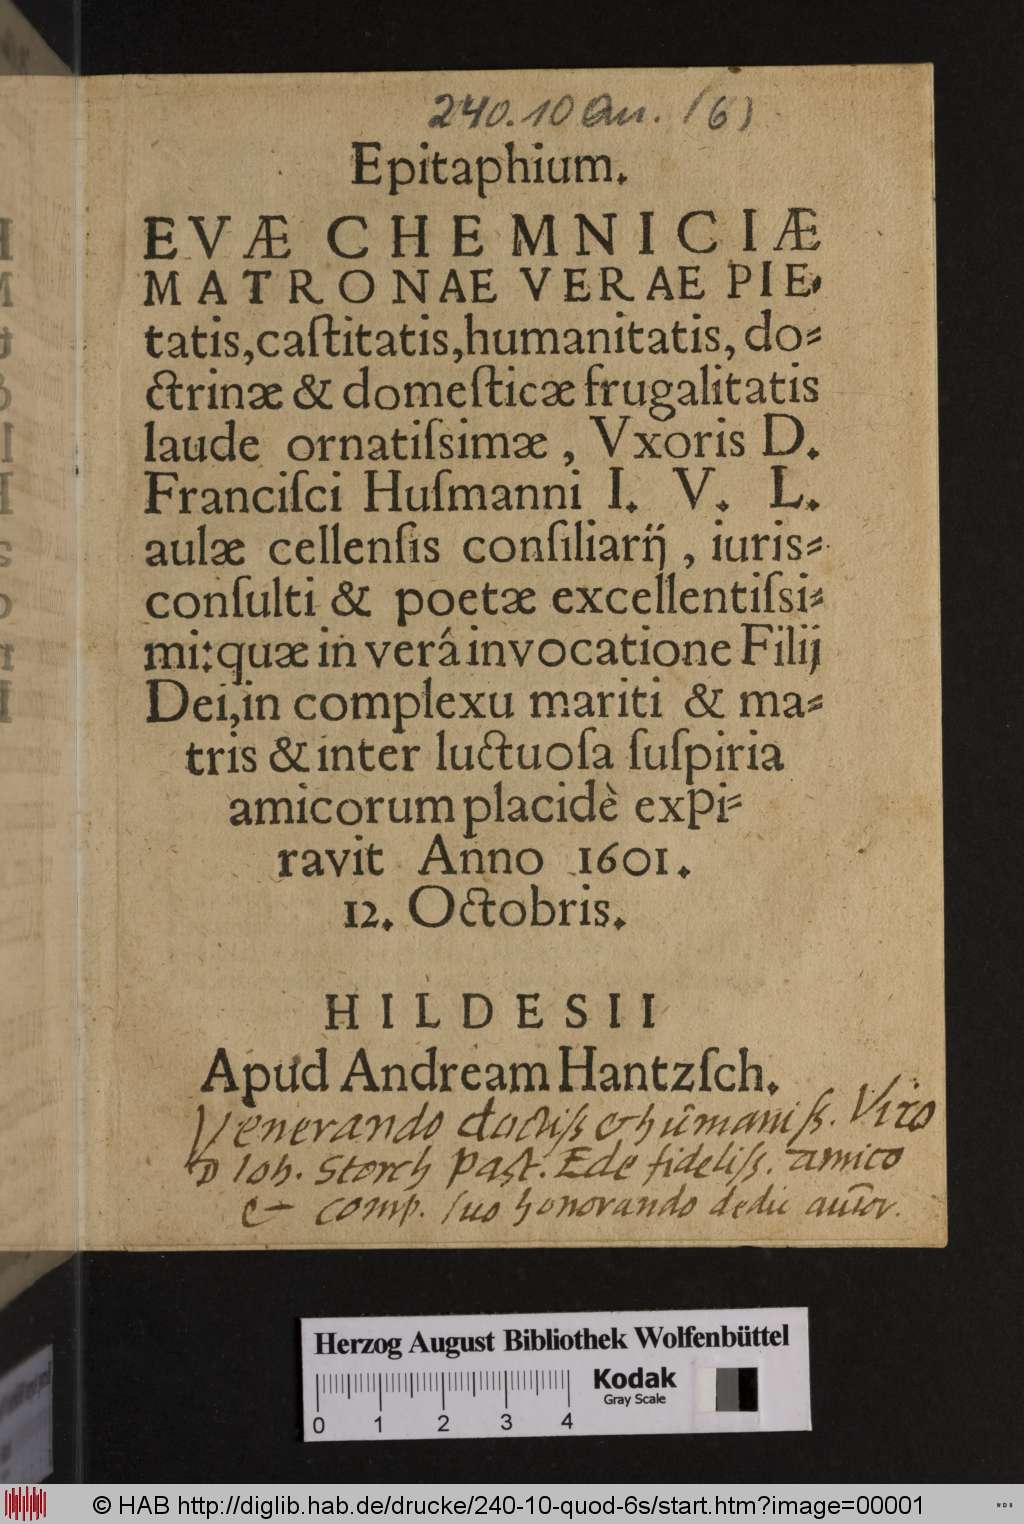 240.10 Qu. (6)
Epitaphium.
EVÆ CHEMNICIÆ
MATRONAE VERAE PIE-
tatis, caſtitatis, humanitatis, do-
ctrinæ & domeſticæ frugalitatis
laude ornatiſsimæ, Vxoris D.
Franciſci Huſmanni I. V. L.
aulæ cellenſis conſiliarij, iuris-
conſulti & poetæ excellentiſsi-
mi: quæ in verá invocatione Filij
Dei, in complexu mariti & ma-
tris & inter luctuoſa ſuſpiria
amicorum placidè expi-
ravit Anno 1601.
12. Octobris.
HILDESII
Apud Andream Hantzſch.
Venerando doctiſs & humaniſſ. Viro
D Ioh. Storch Past. Ede fideliſſ. amico
& comp. suo honorando dedit autor.
Herzog August Bibliothek Wolfenbüttel
Kodak
Gray Scale
0 1 2 3 4
© HAB http://diglib.hab.de/drucke/240-10-quod-6s/start.htm?image=00001